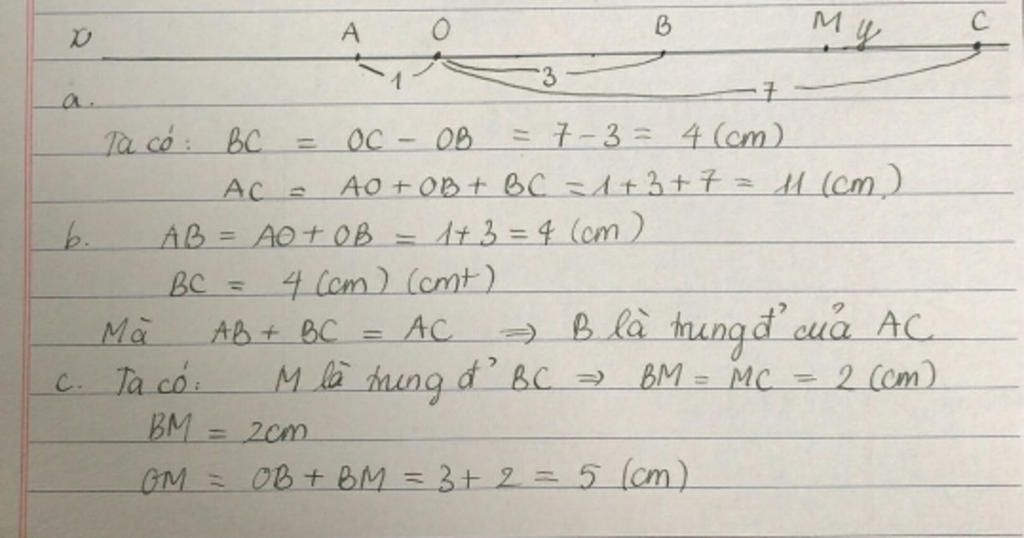 x A O B M y C
1 3 7
a.
Ta có: BC = OC - OB = 7 - 3 = 4 (cm)
AC = AO + OB + BC = 1 + 3 + 7 = 11 (cm)
b. AB = AO + OB = 1 + 3 = 4 (cm)
BC = 4 (cm) (cmt)
Mà AB + BC = AC ⇒ B là trung đ' của AC
c. Ta có: M là trung đ' BC ⇒ BM = MC = 2 (cm)
BM = 2cm
OM = OB + BM = 3 + 2 = 5 (cm)